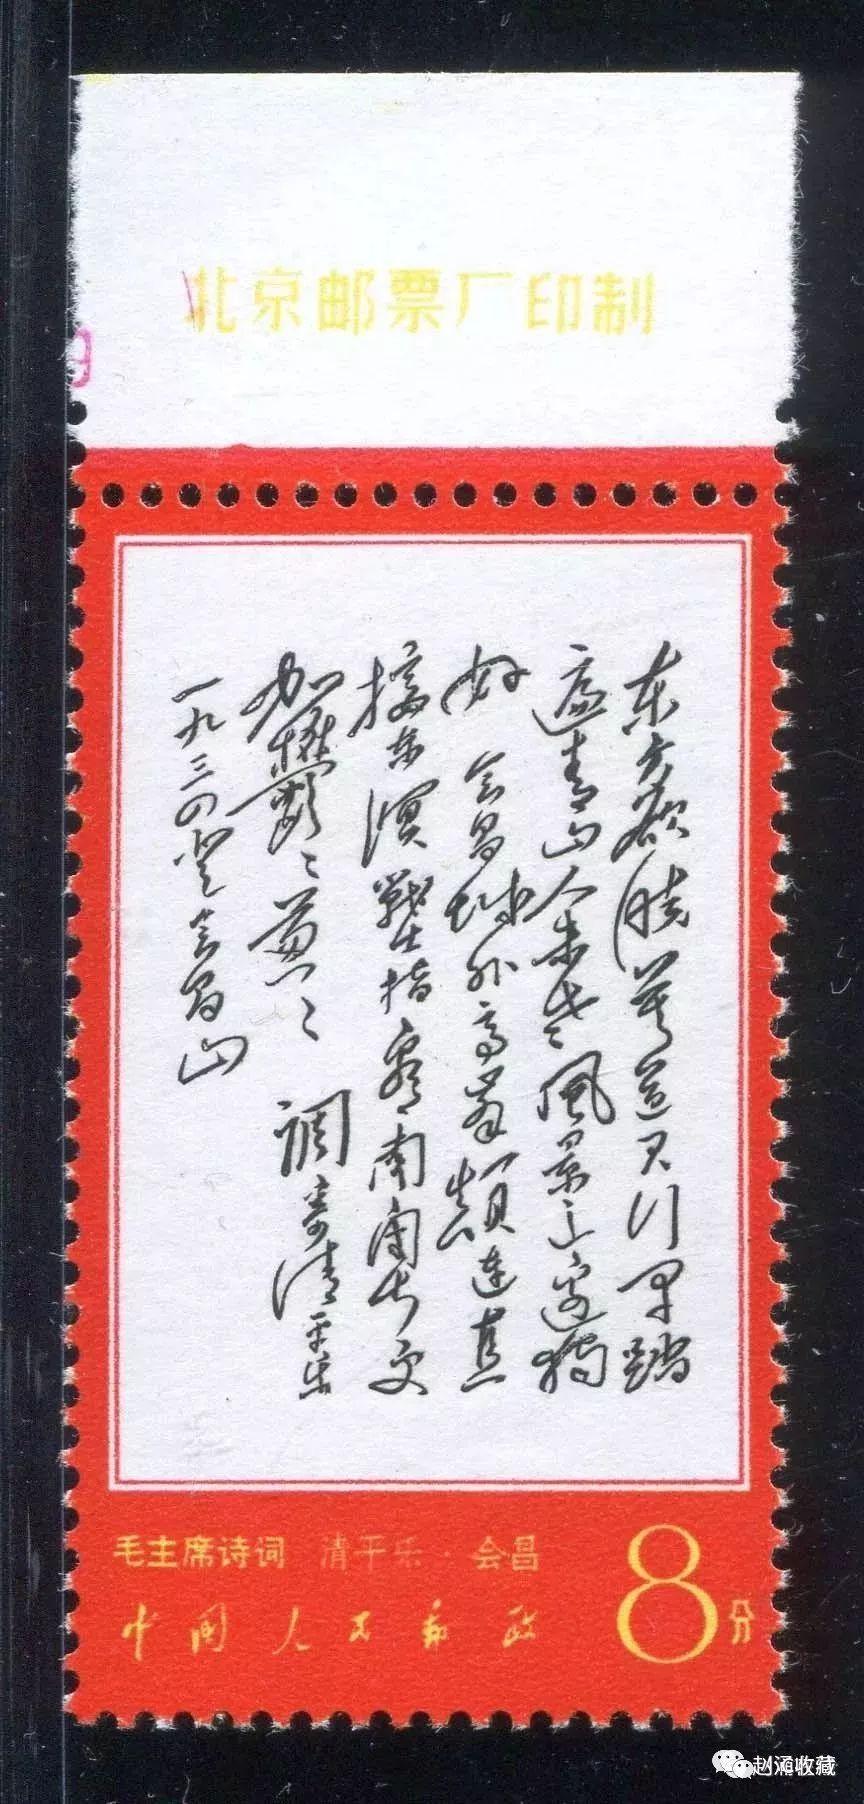 北京邮票厂印制
9
东方欲晓莫道君行早踏
遍青山人未老風景这边独
好 会昌城外高峰颠连直
接东溟戰士指看南粤更
加鬱〻葱〻 調寄清平乐
一九三四登会昌山
毛主席诗词 清平乐·会昌
中国人民邮政
8分
赵涌收藏